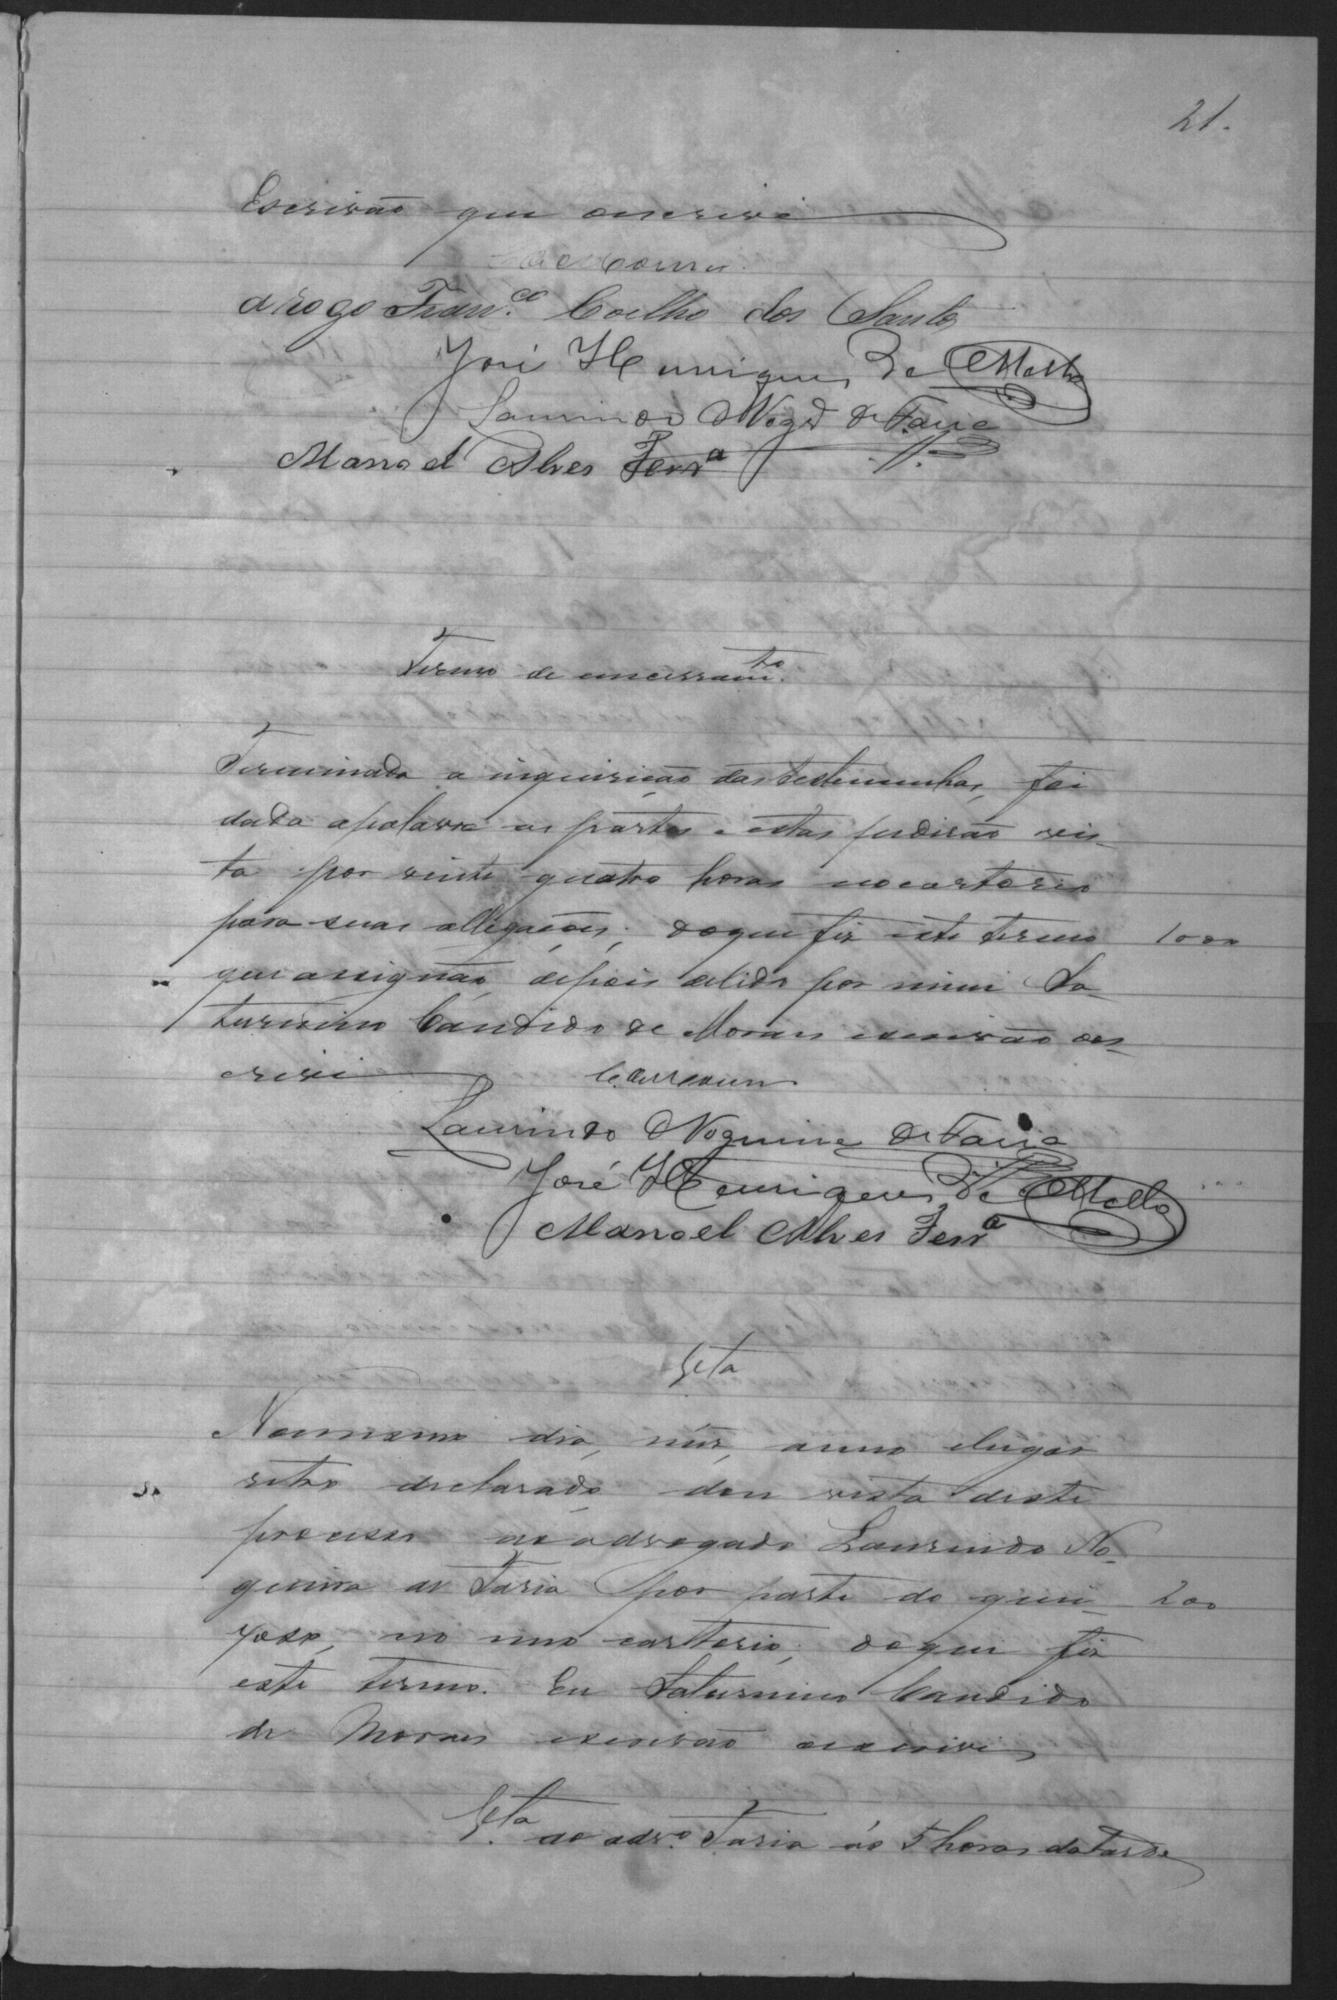 21.
Escrivão que oescrivi
a rogo Fran.co Coelho dos Santos
José Henriques de Mello
Laurindo Nogrª de Faria
Manoel Alves Ferrª
Termo de encerramto.
Terminada a inquirição das testemunhas, foi
dada apalavra as partes e estas pedirão vis-
ta por vinte quatro horas nocartorio
para suas allegações; doque fiz este termo 1000
que assignão, depois delido por mim Sa-
turnino Candido de Moraes escrivão oes-
crivi
Laurindo Nogueira de Faria
José Henriques de Mello
Manoel Alves Ferrª
Vta
Nomesmo dia, mês, anno elugar
retro declarado dou vista deste
processo aoadvogado Laurindo No-
gueira de Faria por parte do quei- 200
xoso, no meu cartorio; doque fiz
este termo. Eu Saturnino Candido
de Moraes escrivão oescrivi
Vta ao advo. Faria ás 5 horas datarde